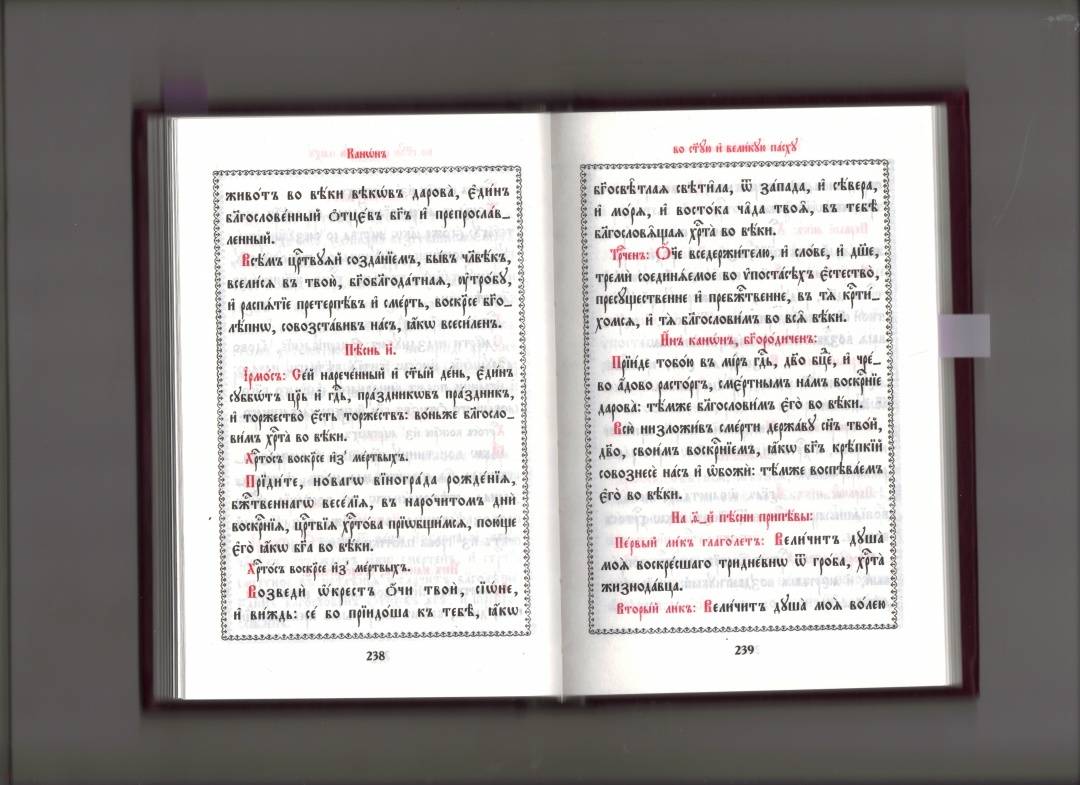 Канѡ́нъ
живо́тъ во вѣ́ки вѣкѡ́въ дарова̀, є҆ди́нъ
бл҃гослове́нный ѻ҆тцє́въ бг҃ъ и҆ препросла́в_
ленный.
Всѣ́мъ црⷭ҇твꙋѧй созда́нїемъ, бы́въ чл҃вѣ́къ,
всели́сѧ въ твою̀, бг҃облагода́тнаѧ, ᲂу҆тро́бꙋ,
и҆ распѧ́тїе претерпѣ́въ и҆ сме́рть, воскрⷭ҇се бг҃о_
лѣ́пнѡ, совозста́вивъ на́съ, ꙗ҆́кѡ всеси́ленъ.
Пѣ́снь и҃.
І҆рмо́съ: Се́й нарече́нный и҆ ст҃ы́й де́нь, є҆ди́нъ
сꙋббѡ́тъ цр҃ь и҆ гдⷭ҇ь, пра́здникѡвъ пра́здникъ,
и҆ торжество̀ є҆́сть торже́ствъ: во́ньже благосло_
ви́мъ хрⷭ҇та̀ во вѣ́ки.
Хрⷭ҇то́съ воскр҃се и҆з̾ ме́ртвыхъ.
Прїиди́те, но́вагѡ вїногра́да рожде́нїѧ,
бжⷭ҇твеннагѡ весе́лїѧ, въ наро́читомъ днѝ
воскрⷭ҇нїѧ, црⷭ҇твїѧ хрⷭ҇то́ва прїѡбщи́мсѧ, пою́ще
є҆го̀ ꙗ҆́кѡ бг҃а во вѣ́ки.
Хрⷭ҇то́съ воскр҃се и҆з̾ ме́ртвыхъ.
Возведѝ ѡ҆́крестъ ѻ҆́чи твоѝ, сїѡ́не,
и҆ ви́ждь: се́ бо прїидо́ша къ тебѣ̀, ꙗ҆́кѡ
238
во ст҃ꙋ́ю и҆ вели́кꙋю па́схꙋ
бг҃освѣ̑тлаѧ свѣти̑ла, ѿ за́пада, и҆ сѣ́вера,
и҆ мо́рѧ, и҆ восто́ка ча̑да твоѧ̑, въ тебѣ̀
благословѧ̑щаѧ хрⷭ҇та̀ во вѣ́ки.
Трⷪ҇ченъ: Ѻ҆́ч҃е вседержи́телю, и҆ сло́ве, и҆ дш҃е,
тремѝ соединѧ́емое во ѵ҆поста́сѣхъ є҆стество̀,
пресꙋ́щественне и҆ пребжⷭ҇твенне, въ тѧ̀ крⷭ҇ти́_
хомсѧ, и҆ тѧ̀ благослови́мъ во всѧ̑ вѣ́ки.
И҆́нъ канѡ́нъ, бг҃оро́диченъ:
Прїи́де тобо́ю въ мі́ръ гдⷭ҇ь, дв҃о бцⷣе, и҆ чре́_
во а҆́дово расто́ргъ, смє́ртнымъ на́мъ воскрⷭ҇нїе
дарова̀: тѣ́мже благослови́мъ є҆го̀ во вѣ́ки.
Всю̀ низложи́въ сме́рти держа́вꙋ сн҃ъ тво́й,
дв҃о, свои́мъ воскрⷭ҇нїемъ, ꙗ҆́кѡ бг҃ъ крѣ́пкїй
совознесѐ на́съ и҆ ѡ҆божѝ: тѣ́мже воспѣва́емъ
є҆го̀ во вѣ́ки.
На ѳ҃_й пѣ́сни припѣ́вы:
Пе́рвый ли́къ глаго́летъ: Вели́читъ дꙋша̀
моѧ̀ воскре́сшаго тридне́внѡ ѿ гро́ба, хрⷭ҇та̀
жизнода́вца.
Вторы́й ли́къ: Вели́читъ дꙋша̀ моѧ̀ во́лею
239